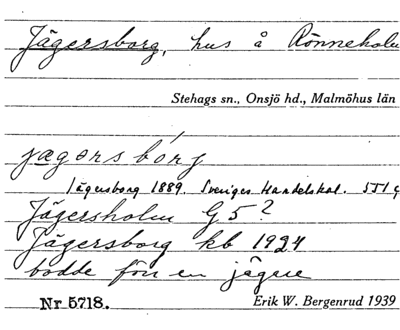 Jägersborg, hus å Rönneholm
Stehags sn., Onsjö hd., Malmöhus län
jægərsbórg
Jägersborg 1889. Sveriges Handelskal. 551 c
Jägersholm G 5?
Jägersborg kb 1924
bodde förr en jägare
Nr. 5718. Erik W. Bergenrud 1939